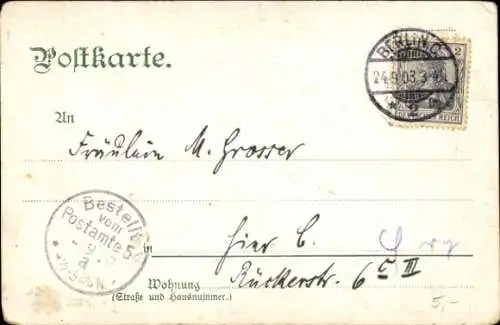 Postkarte.
BERLIN.C.
24.9.03.3-4N.
* 2
2
REICH
An
Fräulein M. Grosser
Bestellt
vom
Postamte 5
9
in
hier C.
Wohnung
Rückerstr. 6 III
(Straße und Hausnummer.)
5,-